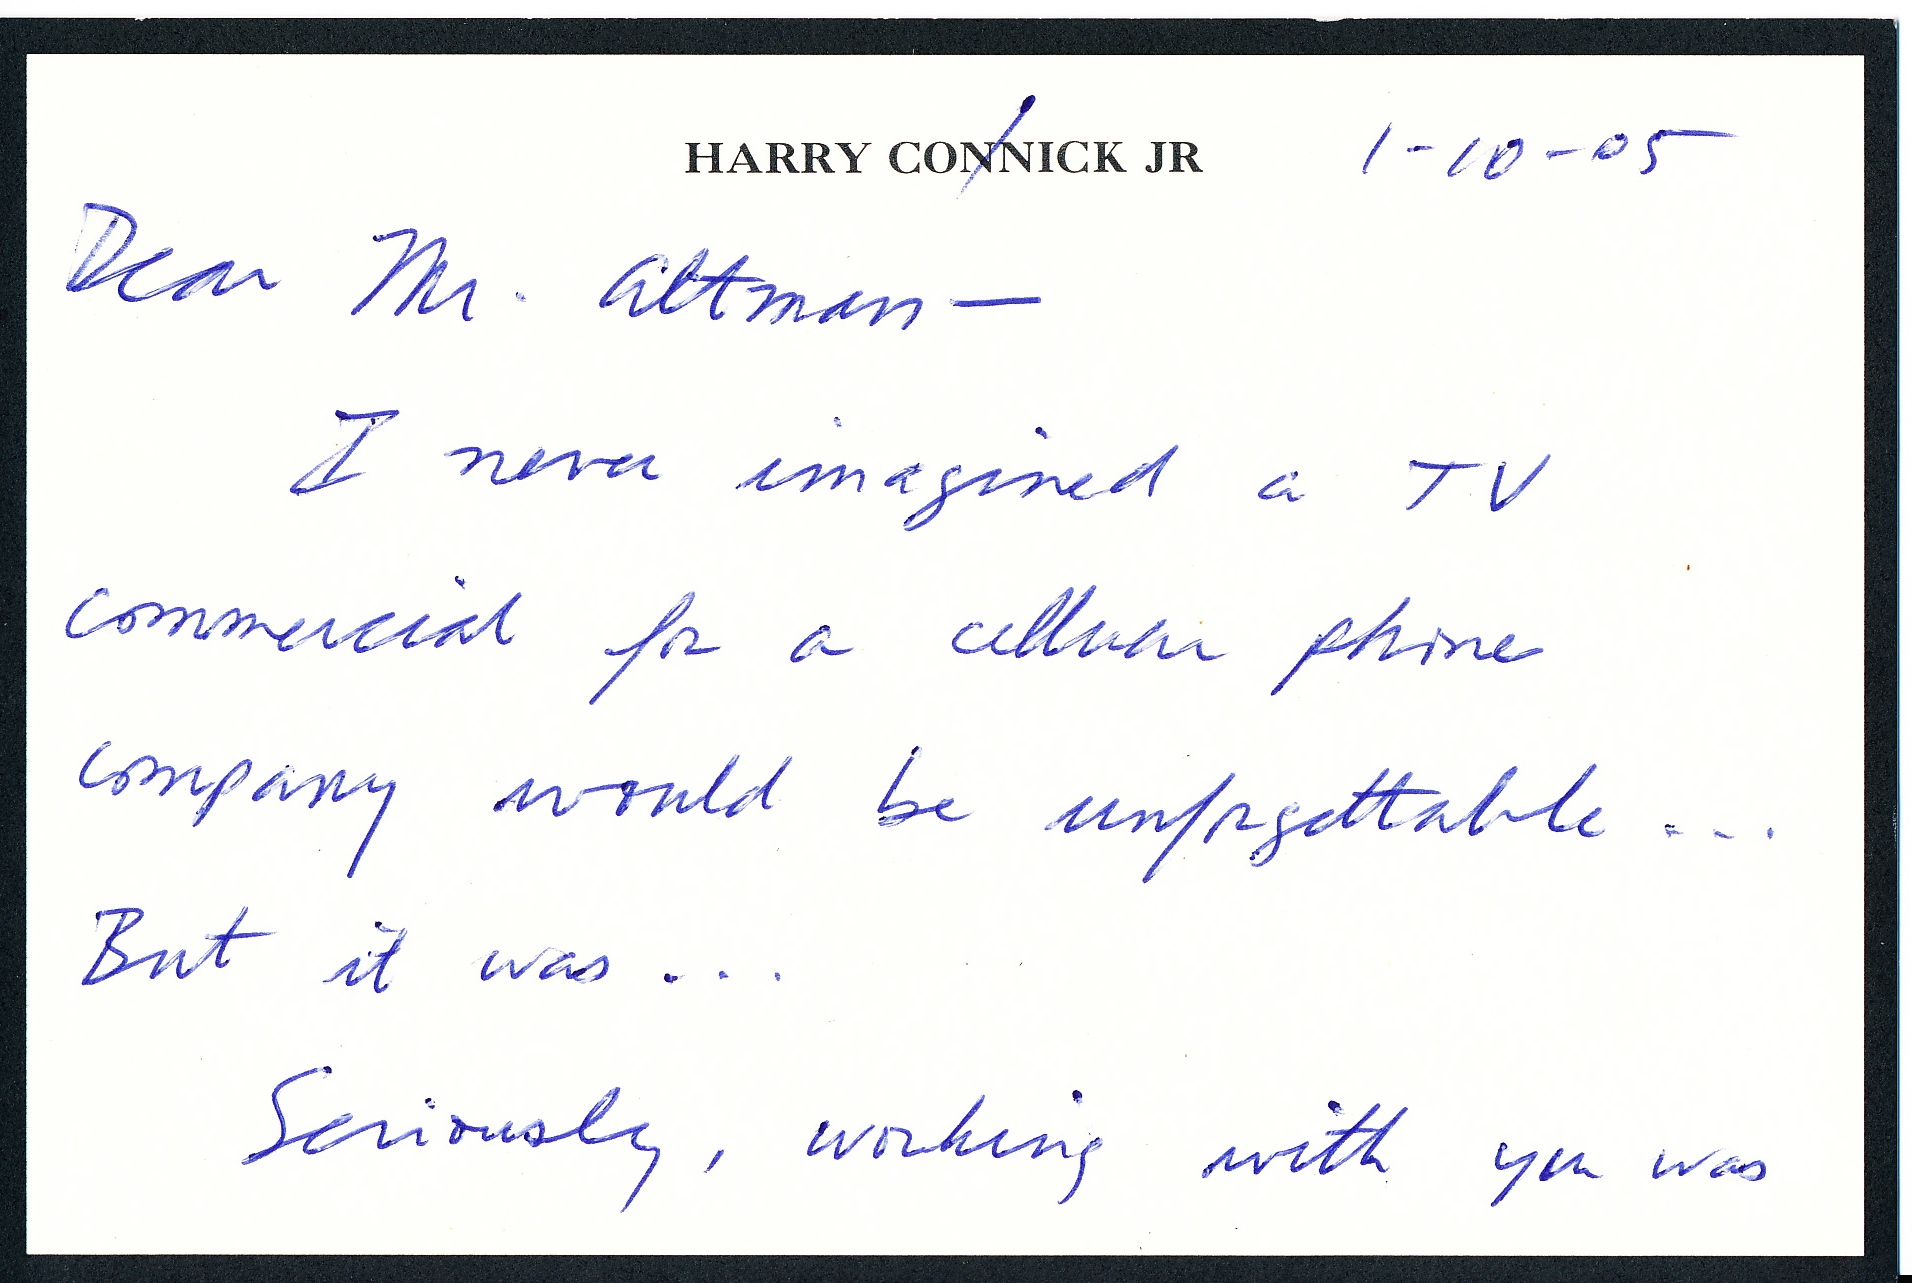 HARRY CONNICK JR 1-10-05
Dear Mr. Altman—
I never imagined a TV
commercial for a cellular phone
company would be unforgettable...
But it was...
Seriously, working with you was